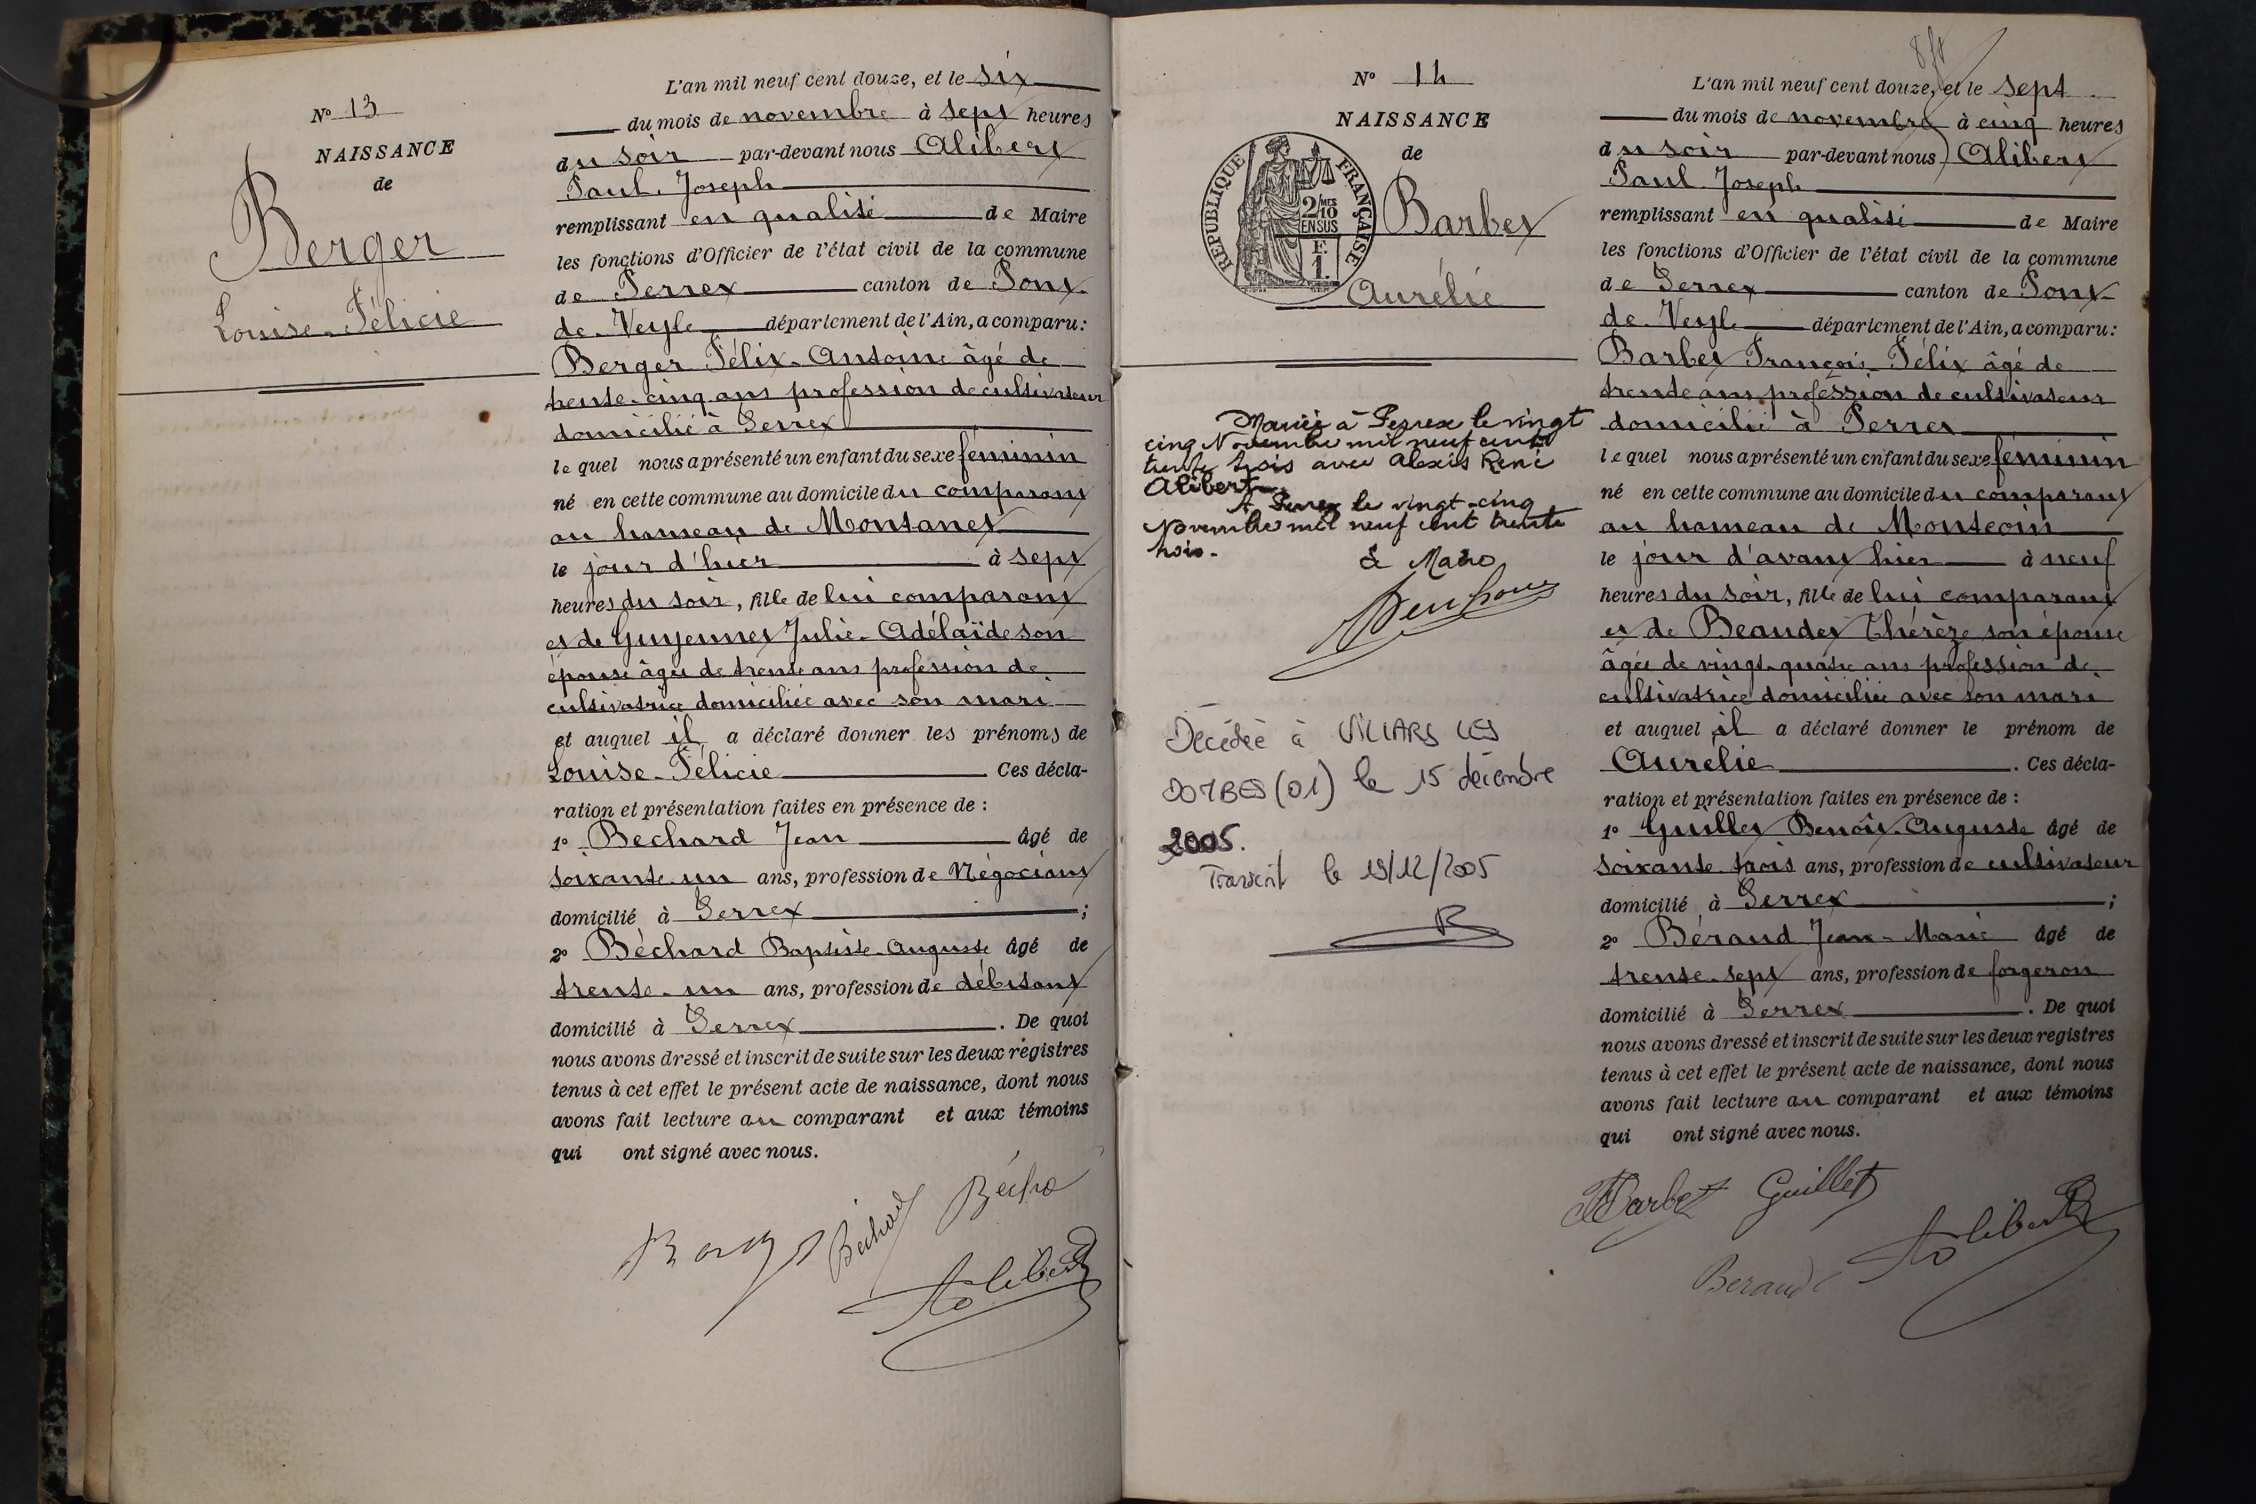 N° 13
NAISSANCE
de
Berger
Louise-Félicie
L'an mil neuf cent douze, et le six
du mois de novembre à sept heures
du soir par-devant nous Alibert
Paul-Joseph
remplissant en qualité de Maire
les fonctions d'Officier de l'état civil de la commune
de Perrex canton de Pont-
de-Veyle département de l'Ain, a comparu:
Berger Félix-Antoine âgé de
trente-cinq ans profession de cultivateur
domicilié à Perrex
le quel nous a présenté un enfant du sexe féminin
né en cette commune au domicile du comparant
au hameau de Montanet
le jour d'hier à sept
heures du soir, fille de lui comparant
et de Guyennet Julie-Adélaïde son
épouse âgée de trente ans profession de
cultivatrice domiciliée avec son mari
et auquel il a déclaré donner les prénoms de
Louise-Félicie Ces décla-
ration et présentation faites en présence de :
1° Bechard Jean âgé de
soixante-un ans, profession de Négociant
domicilié à Perrex ;
2° Béchard Baptiste-Auguste âgé de
trente-un ans, profession de débitant
domicilié à Perrex . De quoi
nous avons dressé et inscrit de suite sur les deux registres
tenus à cet effet le présent acte de naissance, dont nous
avons fait lecture au comparant et aux témoins
qui ont signé avec nous.
Béchard
Alibert
N° 14
NAISSANCE
de
RÉPUBLIQUE FRANÇAISE
2/10 MES
EN SUS
F.
1.
Barbet
Aurélie
Mariée à Perrex le vingt
cinq Novembre mil neuf cent
trente trois avec Alexis René
Alibert
A Perrex le vingt-cinq
Novembre mil neuf cent trente
trois.
Le Maire
Décédée à VILLARS LES
DOMBES (01) le 15 décembre
2005.
Transcrit le 19/12/2005
L'an mil neuf cent douze, et le sept
du mois de novembre à cinq heures
du soir par-devant nous Alibert
Paul-Joseph
remplissant en qualité de Maire
les fonctions d'Officier de l'état civil de la commune
de Perrex canton de Pont-
de-Veyle département de l'Ain, a comparu:
Barbet François-Félix âgé de
trente ans profession de cultivateur
domicilié à Perrex
le quel nous a présenté un enfant du sexe féminin
né en cette commune au domicile du comparant
au hameau de Montcoin
le jour d'avant hier à neuf
heures du soir, fille de lui comparant
et de Beaudet Thérèze son épouse
âgée de vingt-quatre ans profession de
cultivatrice domiciliée avec son mari
et auquel il a déclaré donner le prénom de
Aurélie . Ces décla-
ration et présentation faites en présence de :
1° Guillet Benoît-Auguste âgé de
soixante-trois ans, profession de cultivateur
domicilié à Perrex ;
2° Béraud Jean-Marie âgé de
trente-sept ans, profession de forgeron
domicilié à Perrex . De quoi
nous avons dressé et inscrit de suite sur les deux registres
tenus à cet effet le présent acte de naissance, dont nous
avons fait lecture au comparant et aux témoins
qui ont signé avec nous.
Barbet Guillet
Alibert
Beraud